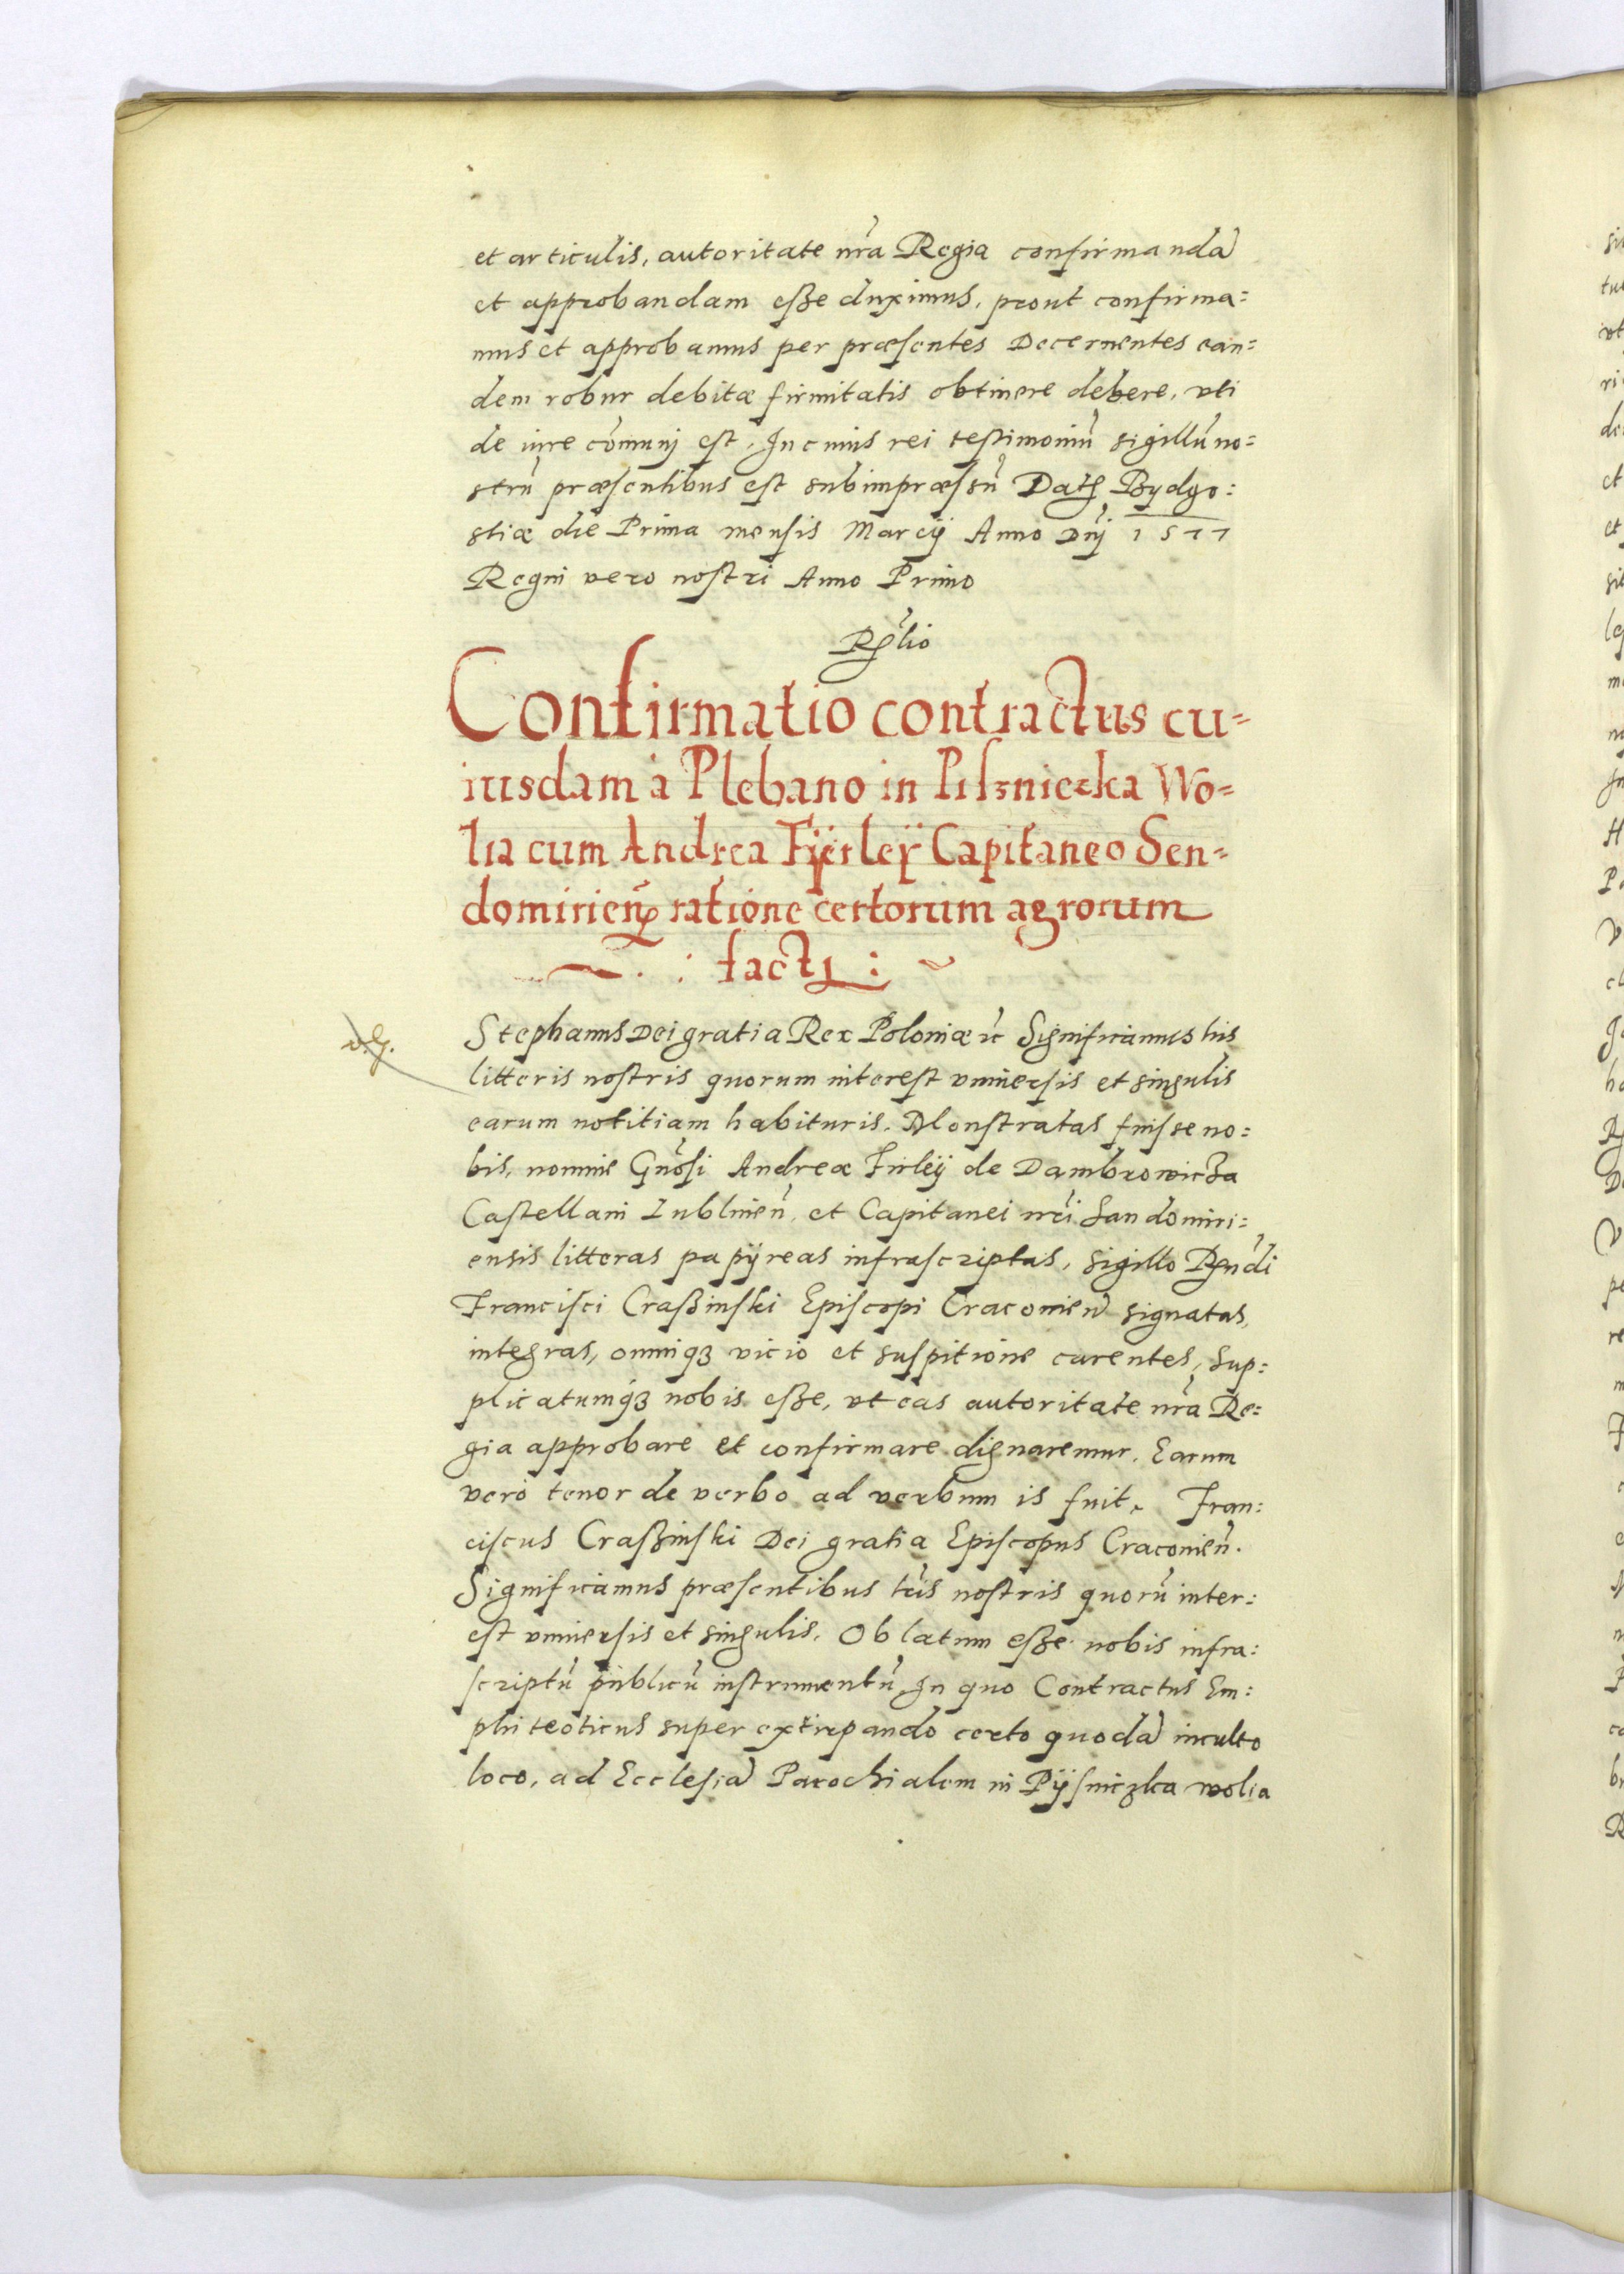 et articulis, autoritate nr̃a Regia confirmandã
et approbandam eſße duximus, prout confirma=
mus et approbamus per præſentes Decernentes ean=
dem robur debitæ firmitatis obtinere debere, vti
de iure cõmunj eſt. In cuius rei teſtimoniũ sigillũ no=
strũ præſentibus eſt subimpræſsũ Datꝭ Bydgo:
stiæ die Prima menſis Marcij Anno Dnj̃ 1577
Regni vero noſtri Anno Primo
Confirmatio contractus cu=
iusdam à Plebano in Pilsznieczka Wo=
lia cum Andrea Fÿerleÿ Capitaneo Sen=
domirienꝭ ratione certorum agrorum
: facti :
Stephanus Dei gratia Rex Poloniæ ꝛc Significamus his
litteris noſtris quorum intereſt vniuerſis et singulis
earum notitiam habituris. Monſtratas fuiſse no:
bis, nomine Gnõſi Andreæ Firleÿ de Dambrowicza
Caſtellani Lublineñ. et Capitanei nr̃i Sandomiri=
ensis litteras papÿreas infraſcriptas, sigillo Rꝑñdi
Franciſci Craßinſki Epiſcopi Cracouieñ signatas,
integras, omniqꝫ vicio et suſpitione carentes, Sup:
plicatumqꝫ nobis eſße, vt eas autoritate nr̃a Re=
gia approbare et confirmare dignaremur. Earum
verò tenor de verbo ad verbum is fuit. Fran:
ciſcus Craßinſki Dei gratia Epiſcopus Cracouieñ.
Significamus præſentibus lr̃is noſtris quorũ inter:
eſt vniuerſis et singulis. Oblatum eſße nobis infra:
ſcriptũ publicũ inſtrumentũ, In quo Contractus Em:
phiteoticus super extirpando certo quodã inculto
loco, ad Eccleſiã Parochialem in Pÿſniczka wolia